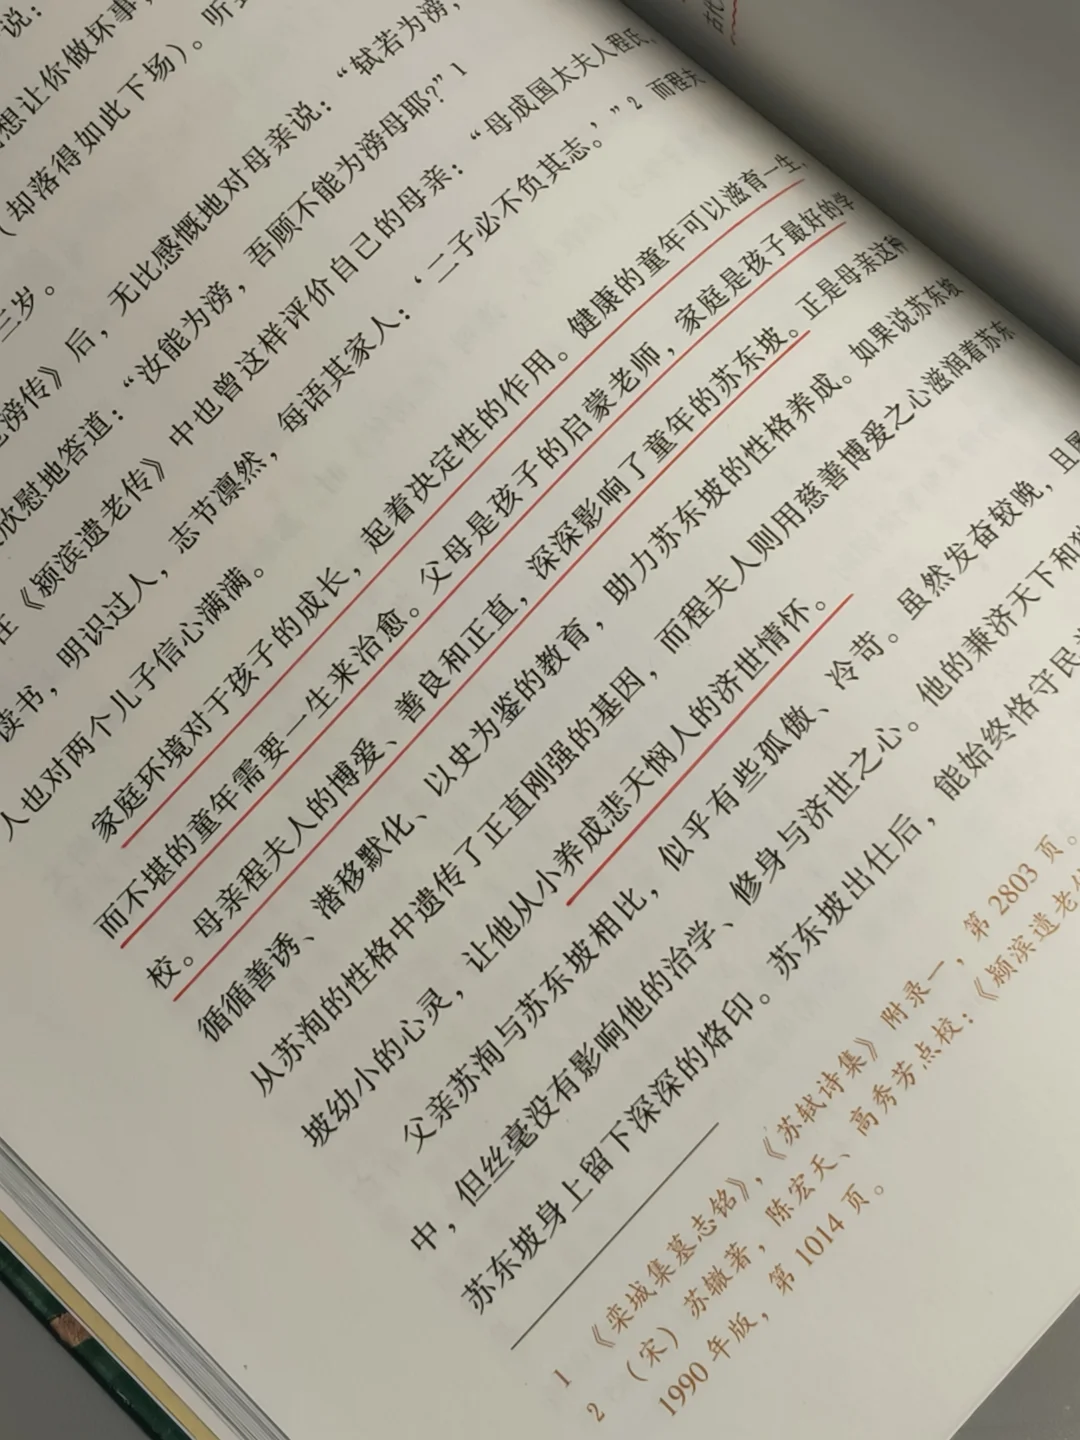 说：
想让你做坏事，
（却落得如此下场）。听
三岁。
滂传》后，无比感慨地对母亲说：“轼若为滂，
欣慰地答道：“汝能为滂，吾顾不能为滂母耶？”1
在《颍滨遗老传》中也曾这样评价自己的母亲：“母成国太夫人程氏，
读书，明识过人，志节凛然，每语其家人：‘二子必不负其志。’”2 而程夫
人也对两个儿子信心满满。
家庭环境对于孩子的成长，起着决定性的作用。健康的童年可以滋育一生，
而不堪的童年需要一生来治愈。父母是孩子的启蒙老师，家庭是孩子最好的学
校。母亲程夫人的博爱、善良和正直，深深影响了童年的苏东坡。正是母亲这种
循循善诱、潜移默化、以史为鉴的教育，助力苏东坡的性格养成。如果说苏东坡
从苏洵的性格中遗传了正直刚强的基因，而程夫人则用慈善博爱之心滋润着苏东
坡幼小的心灵，让他从小养成悲天悯人的济世情怀。
父亲苏洵与苏东坡相比，似乎有些孤傲、冷苛。虽然发奋较晚，且
中，但丝毫没有影响他的治学、修身与济世之心。他的兼济天下和
苏东坡身上留下深深的烙印。苏东坡出仕后，能始终恪守民
1 《栾城集墓志铭》，《苏轼诗集》附录一，第 2803 页。
2 （宋）苏辙著，陈宏天、高秀芳点校：《颍滨遗老
1990 年版，第 1014 页。
古代